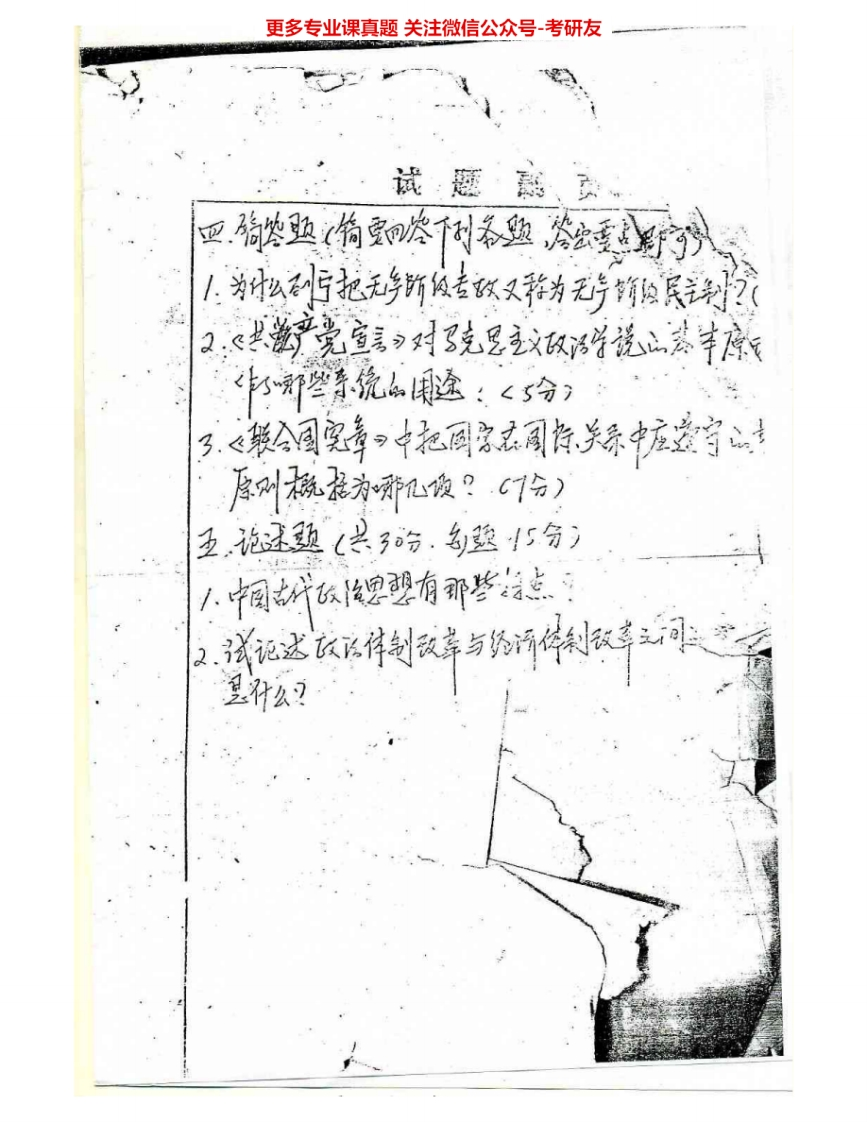 更多专业课真题 关注微信公众号-考研友
试 题
四.简答题(简要回答下列各题,答出要点即可)
1.为什么列宁把无产阶级专政又称为无产阶级民主制?(
2.《共产党宣言》对马克思主义政治学说的基本原
作了哪些系统的阐述:(5分)
3.《联合国宪章》中把国家在国际关系中应遵守的
原则概括为哪几项?(7分)
五.论述题(共30分.每题15分)
1.中国古代政治思想有那些特点?
2.试论述政治体制改革与经济体制改革之间
是什么?